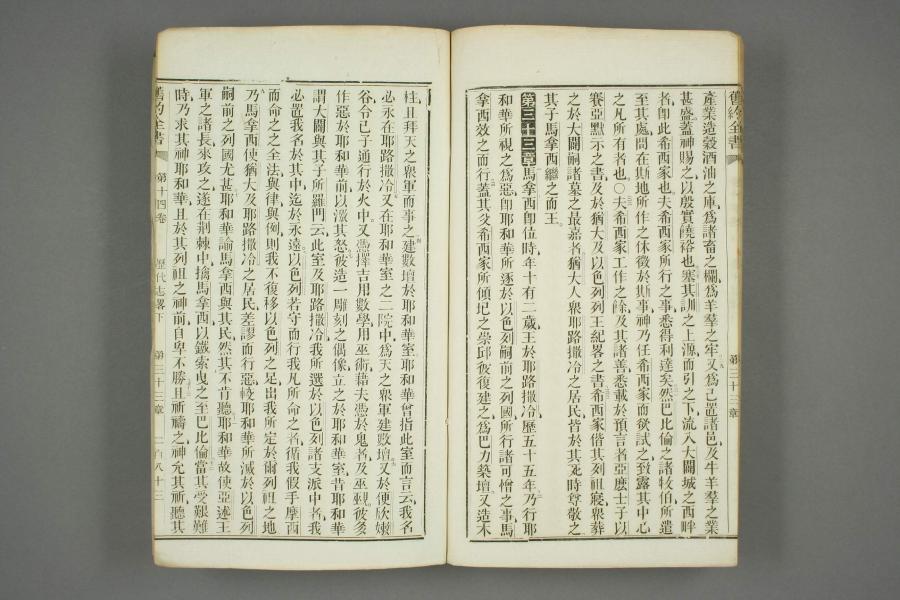 舊約全書
第三十三章
產業造穀酒油之庫爲諸畜之欄爲羊羣之牢又爲己置諸邑及牛羊羣之業
甚盛蓋神賜之以殷實饒裕也塞其訓之上源而引之下流入大闢城之西畔
者卽此希西家也夫希西家所行之事悉得利達矣然巴比倫之諸牧伯所遣
至其處問在斯地所作之休徵於斯事神乃任希西家而欲試之致露其中心
之凡所有者也○夫希西家工作之餘及其諸善悉載於預言者亞麼士子以
賽亞默示之書及於猶大及以色列列王紀畧之書希西家偕其列祖寢衆葬
之於大闢嗣諸墓之最嘉者猶大人衆耶路撒冷之居民皆於其死時尊敬之
其子馬拿西繼之而王
第三十三章馬拿西卽位時年十有二歲王於耶路撒冷歷五十五年乃行耶
和華所視之爲惡卽耶和華所逐於以色列嗣前之列國所行諸可憎之事馬
拿西效之而行蓋其父希西家所傾圮之崇邱彼復建之爲巴力築壇又造木
柱且拜天之衆軍而事之建數壇於耶和華室耶和華曾指此室而言云我名
必永在耶路撒冷又在耶和華室之二院中爲天之衆軍建數壇又於便欣嫩
谷令已子通行於火中又憑擇吉用數學用巫術藉夫憑於鬼者及巫覡彼多
作惡於耶和華前以激其怒彼造一雕刻之偶像立之於耶和華室昔耶和華
謂大闢與其子所羅門云此室及耶路撒冷我所選於以色列諸支派中者我
必置我名於其中迄於永遠以色列若守而行我凡所命之者循我假手摩西
而命之之全法與律與例則我不復移以色列之足出我所定於爾列祖之地
乃馬拿西使猶大及耶路撒冷之居民差謬而行惡較耶和華所滅於以色列
嗣前之列國尤甚耶和華諭馬拿西與其民然其不肯聽耶和華故使亞述王
軍之諸長來攻之遂在荆棘中擒馬拿西以鐵索曳之至巴比倫當其受艱難
時乃求其神耶和華且於其列祖之神前自卑不勝且祈禱之神允其祈聽其
舊約全書 第十四卷 歷代志畧下 第三十三章 二百八十三